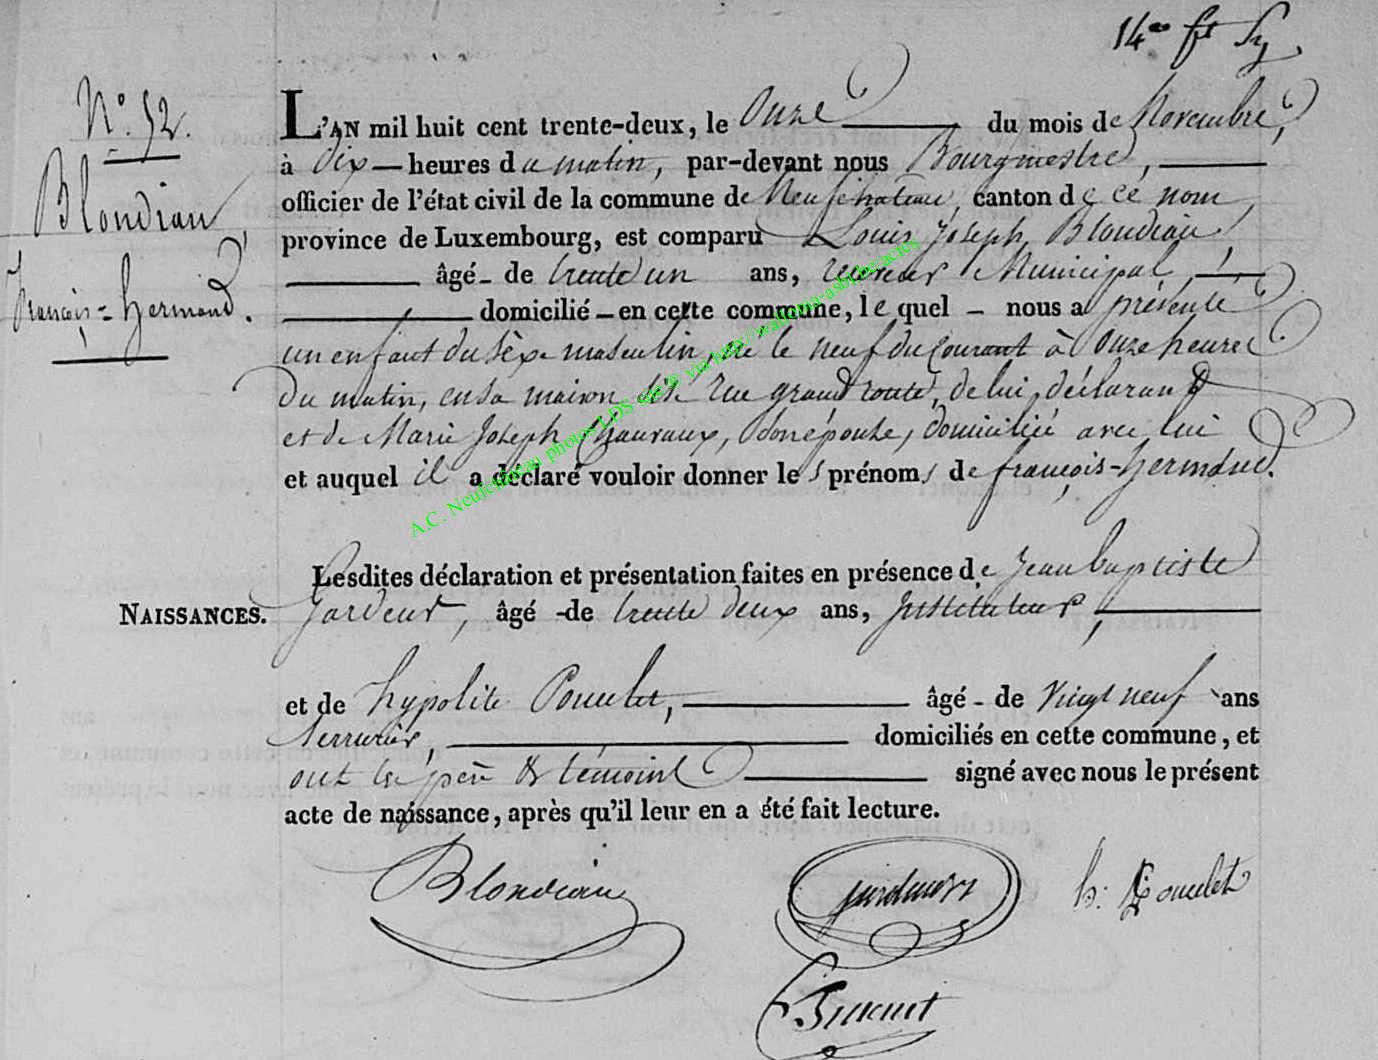 14
N° 52.
Blondiau
François=hermand.
L'AN mil huit cent trente-deux, le Onze du mois de Novembre,
à dix heures du matin, par-devant nous Bourgmestre,
officier de l'état civil de la commune de Neufchateau, canton de ce nom,
province de Luxembourg, est comparu Louis Joseph Blondiau,
âgé de trente un ans, receveur Municipal,
domicilié en cette commune, lequel nous a présenté
un enfant du sèxe masculin, né le neuf du courant à Onze heures
du matin, en sa maison rue grand route, de lui déclarant
et de Marie Joseph, son épouse, domiciliée avec lui
et auquel il a déclaré vouloir donner les prénoms de françois-hermand.
NAISSANCES.
Lesdites déclaration et présentation faites en présence de Jean baptiste
Jardeur, âgé de trente deux ans, Instituteur,
et de hypolite Poncelet, âgé de Vingt neuf ans
Serrurier domiciliés en cette commune, et
ont les père & témoins signé avec nous le présent
acte de naissance, après qu'il leur en a été fait lecture.
Blondiau
h: Poncelet
A.C. Neufchâteau photos LDS via http://wallonia-asbl.be:actes